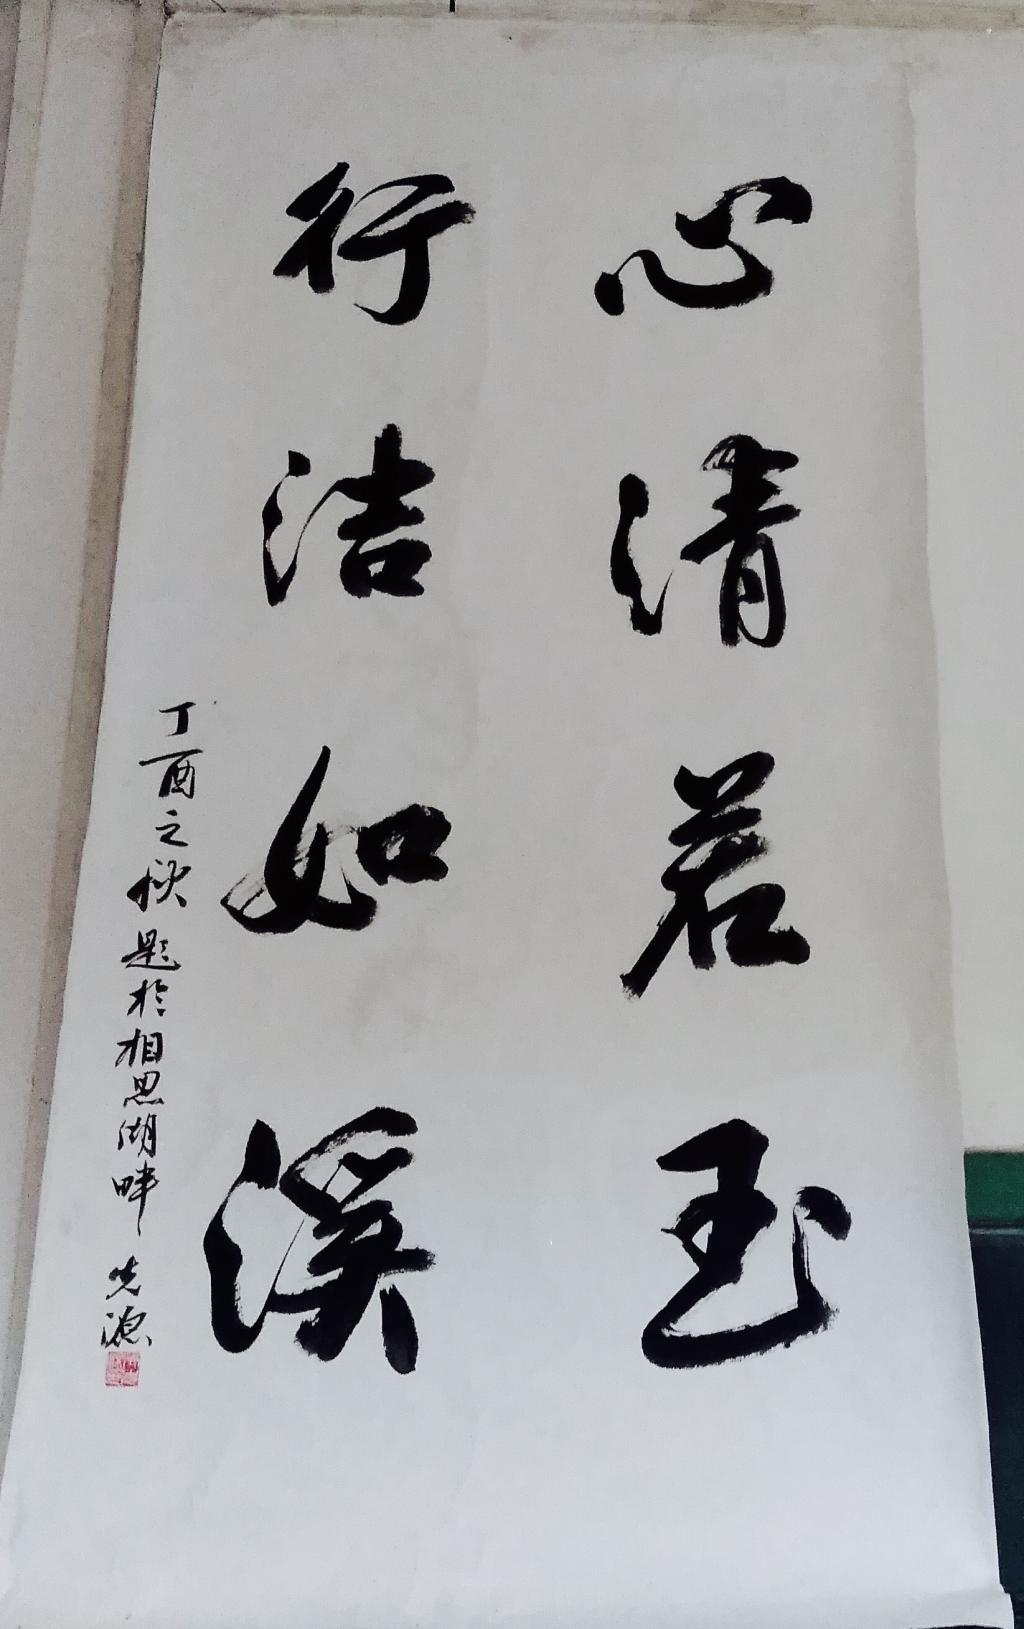 心清若玉
行洁如溪
丁酉之秋题於相思湖畔 先源